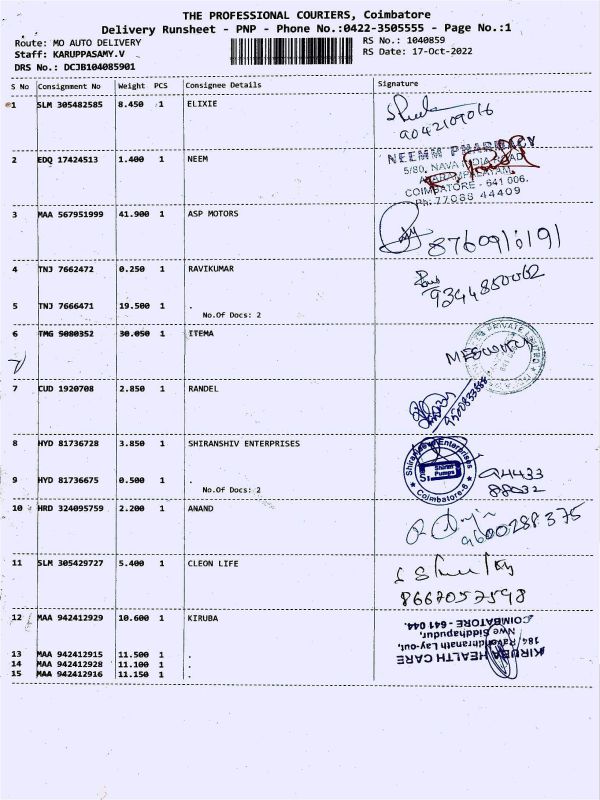 THE PROFESSIONAL COURIERS, Coimbatore
Delivery Runsheet - PNP - Phone No.:0422-3505555 - Page No.:1
Route: MO AUTO DELIVERY
RS No.: 1040859
Staff: KARUPPASAMY.V
RS Date: 17-Oct-2022
DRS No.: DCJB104085901
S No Consignment No Weight PCS Consignee Details Signature
1 SLM 305482585 8.450 1 ELIXIE
9042109016
2 EDQ 17424513 1.400 1 NEEM
NEEMM PHARMACY
5/80, NAVA INDIA ROAD
COIMBATORE - 641 006.
Ph: 77088 44409
3 MAA 567951999 41.900 1 ASP MOTORS
4 TNJ 7662472 0.250 1 RAVIKUMAR
9344850062
5 TNJ 7666471 19.500 1 .
No.Of Docs: 2
6 TMG 5080352 30.050 1 ITEMA
PRIVATE LIMITED
7 CUD 1920708 2.850 1 RANDEL
9500833888
8 HYD 81736728 3.850 1 SHIRANSHIV ENTERPRISES
Enterprises
Shiran Pumps
Coimbatore-6
94433
88032
9 HYD 81736675 0.500 1 .
No.Of Docs: 2
10 HRD 324095759 2.200 1 ANAND
9600288375
11 SLM 305429727 5.400 1 CLEON LIFE
8667057598
12 MAA 942412929 10.600 1 KIRUBA
KIRUBA HEALTH CARE
184, Ravindranath Lay-out,
Nwe Siddhapudur,
COIMBATORE - 641 044.
13 MAA 942412915 11.500 1 .
14 MAA 942412928 11.100 1 .
15 MAA 942412916 11.150 1 .